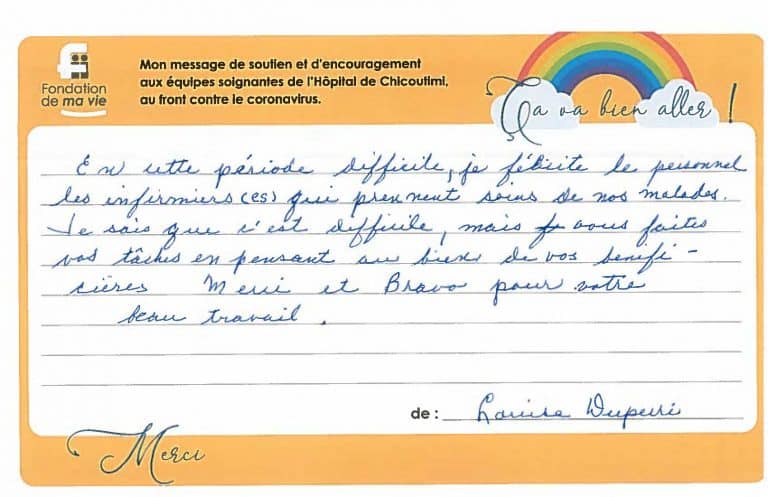 Fondation
de ma vie
Mon message de soutien et d'encouragement
aux équipes soignantes de l'Hôpital de Chicoutimi,
au front contre le coronavirus.
Ça va bien aller !
En cette période difficile, je félicite le personnel
les infirmiers (es) qui prennent soins de nos malades.
Je sais que c'est difficile, mais vous faites
vos tâches en pensant au bien de vos benifi-
cières Merci et Bravo pour votre
beau travail.
de : Louise
Merci